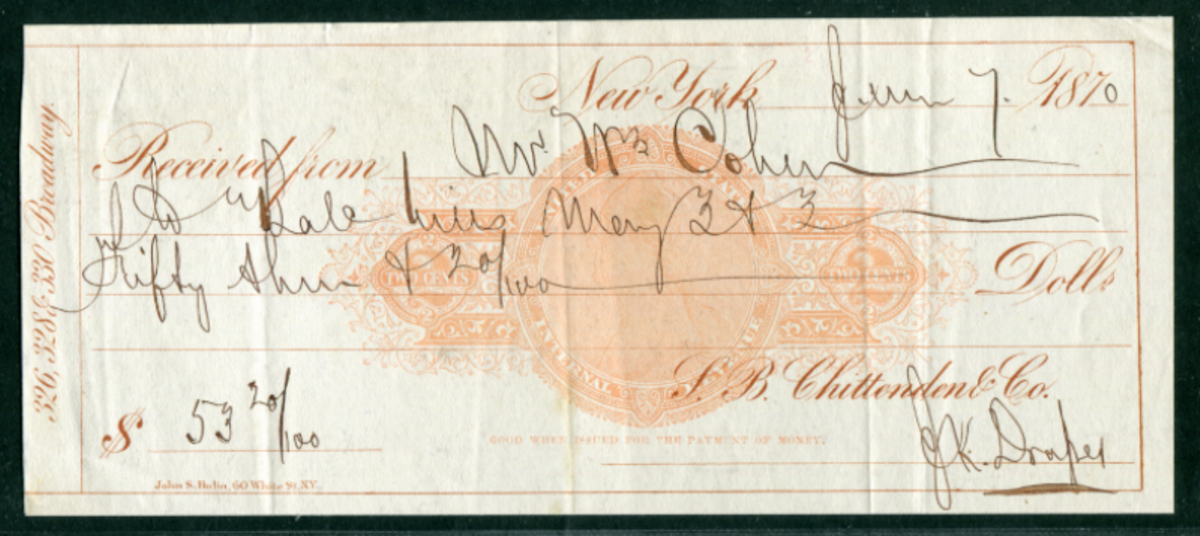 New York June 7. 1870
Received from Mr. Wm Cohen
to Bale May 3 & 3
Fifty three & 20/100 Dolls
TWO CENTS
TWO CENTS
UNITED STATES
INTERNAL REVENUE
S. B. Chittenden & Co.
$ 53 20/100
GOOD WHEN ISSUED FOR THE PAYMENT OF MONEY.
J.K. Draper
John S. Hulin, 60 White St. N.Y.
326, 328 & 330 Broadway